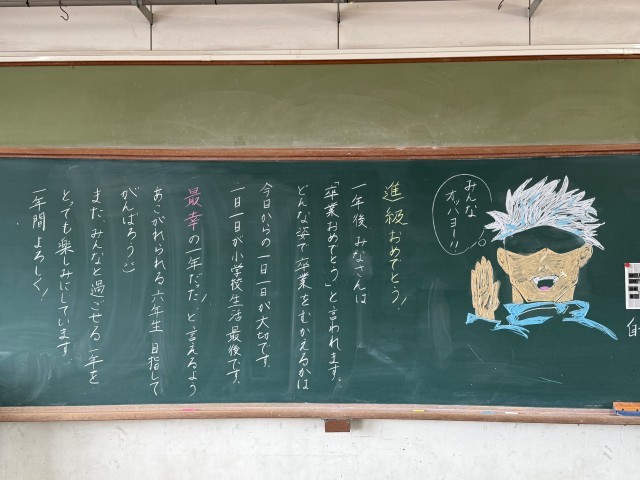 みんな
オッハョー!!
進級おめでとう!
一年後みなさんは
「卒業おめでとう」と言われます。
どんな姿で卒業をむかえるかは
今日からの一日一日が大切です。
一日一日が小学校生活最後です。
最幸の一年だった!と言えるよう
あこがれられる六年生目指して
がんばろう:)
また、みんなと過ごせる一年を
とっても楽しみにしています。
一年間よろしく!